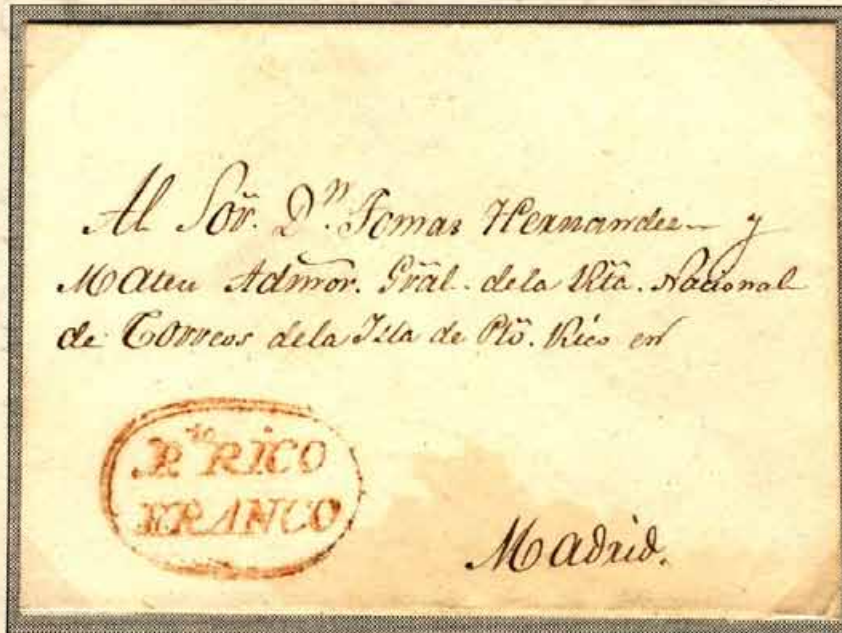 Al Sor. Dn. Tomas Hernandez y
Mateu Admor. Gral. de la Rta. Nacional
de Correos de la Isla de Pto. Rico en
Pto RICO
FRANCO
Madrid.